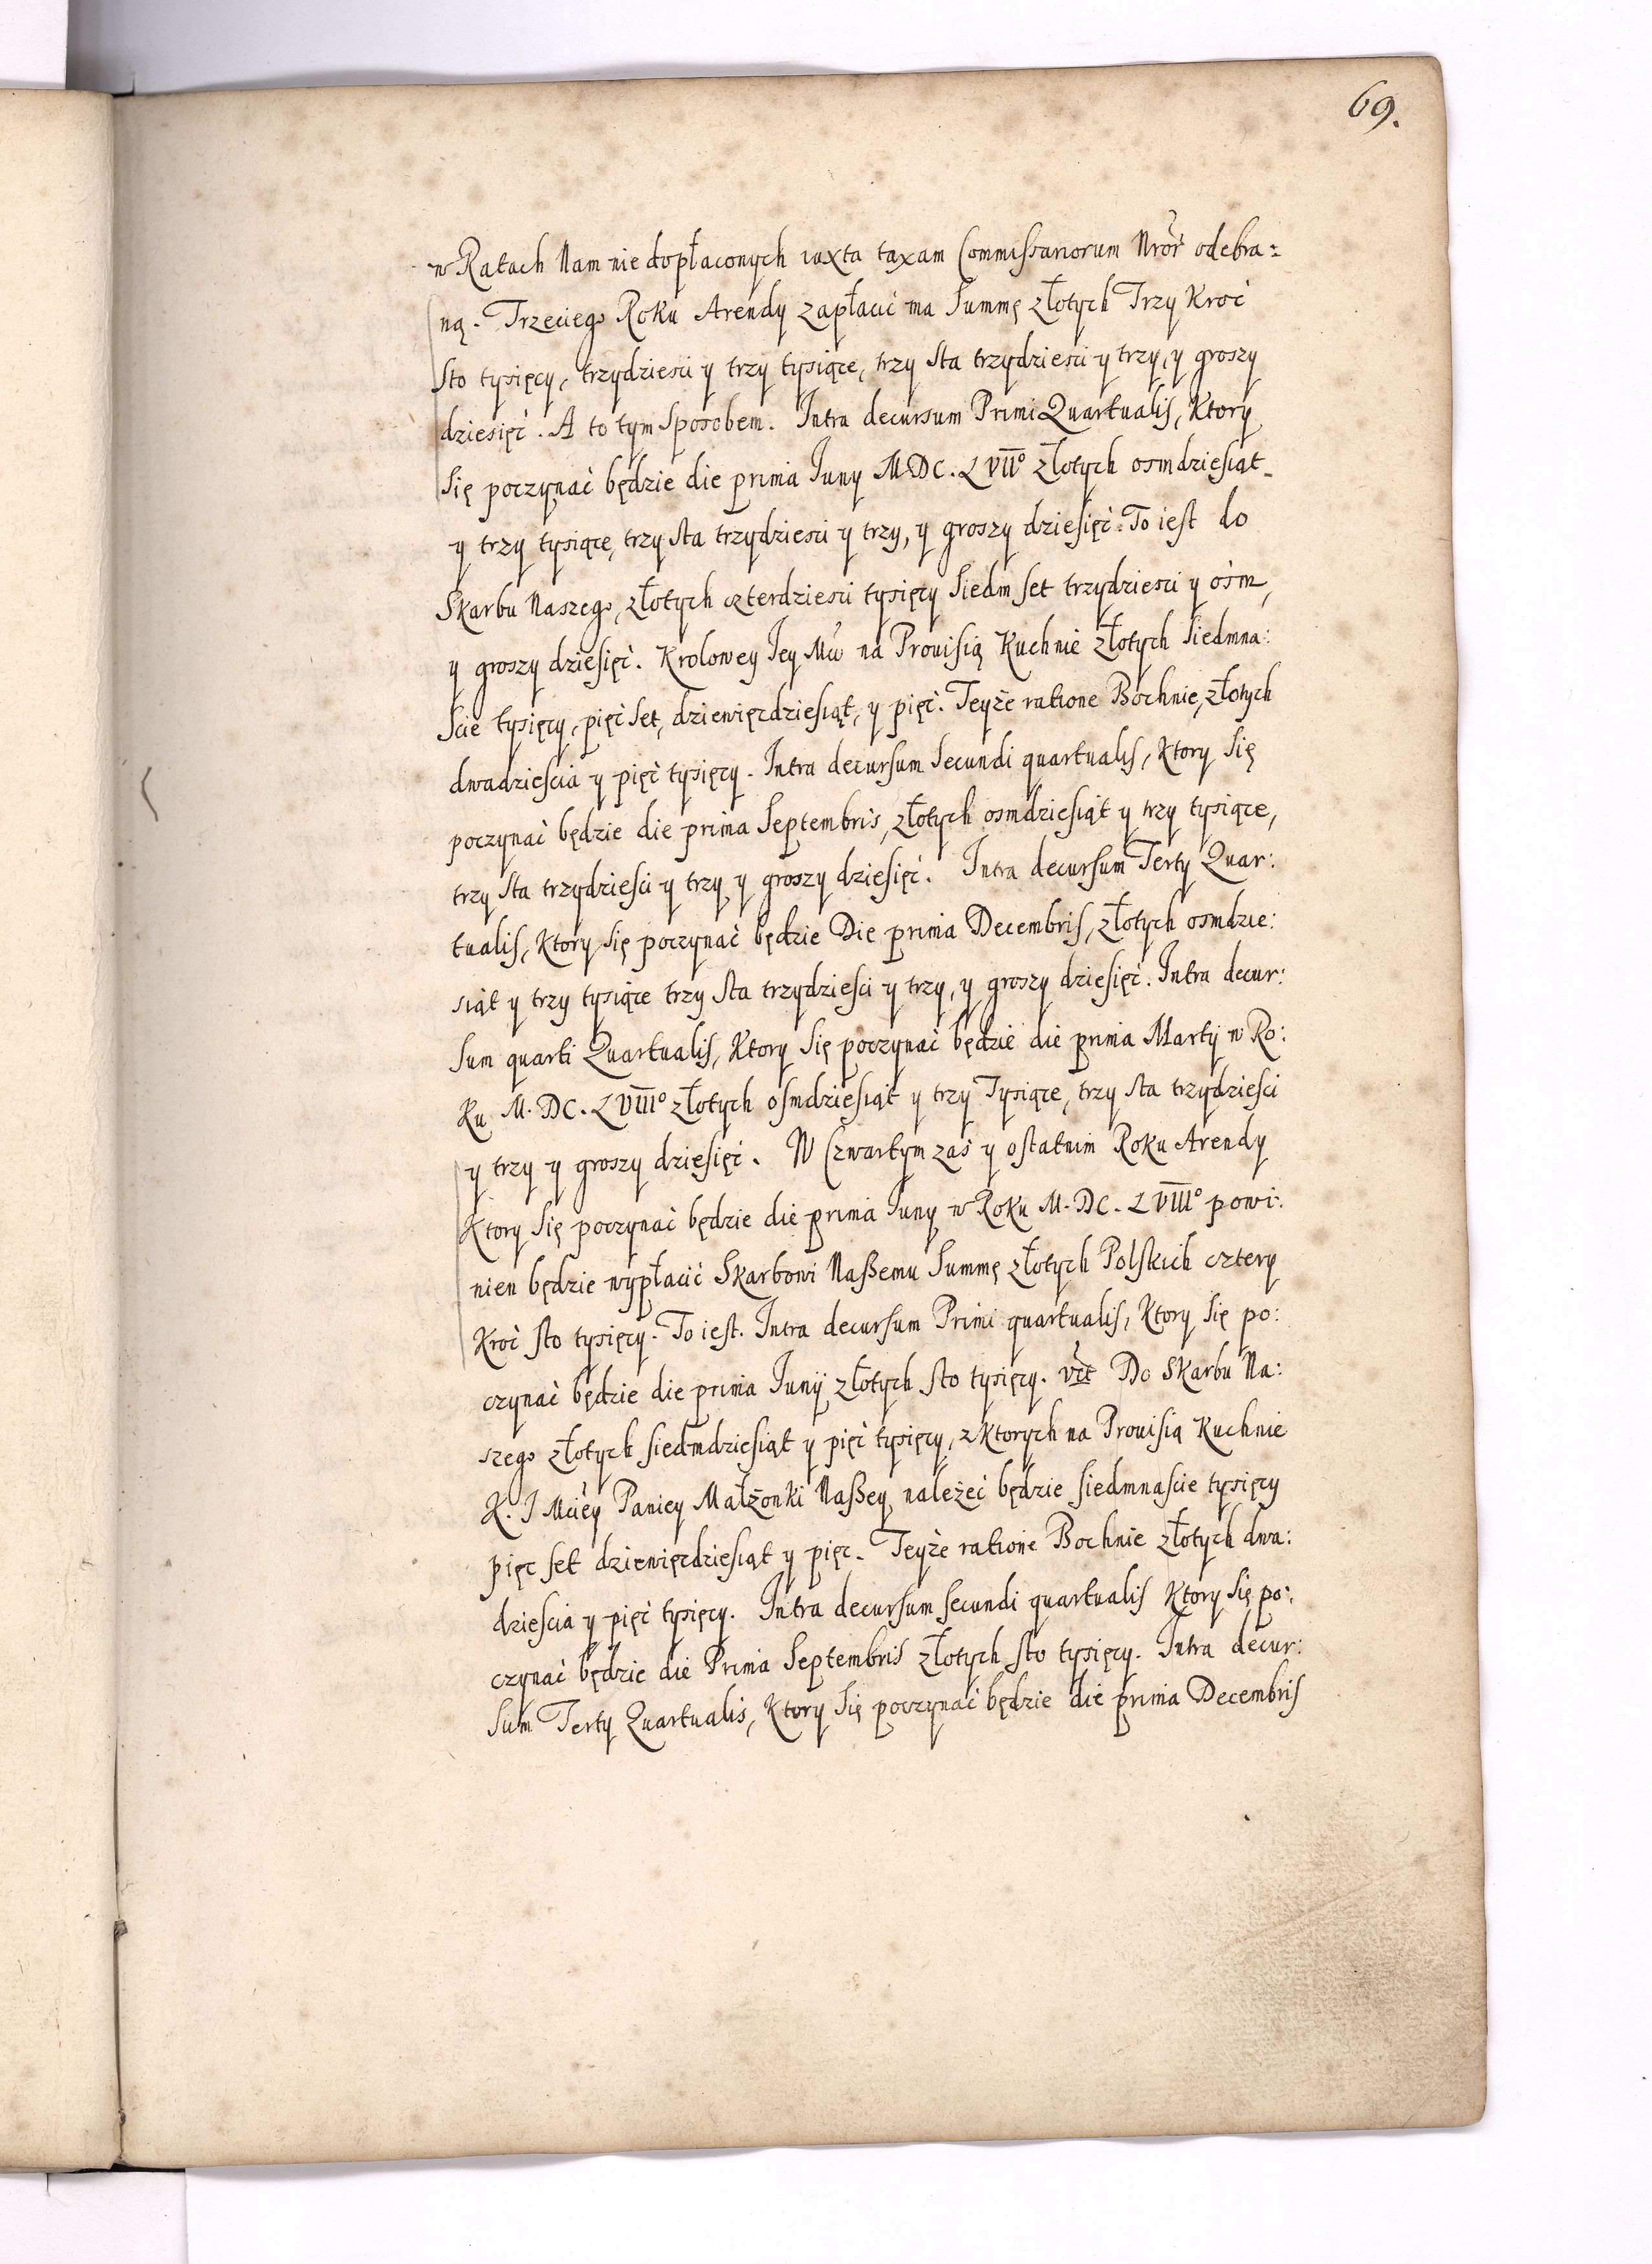 69.
w Ratach Nam nie dopłaconych iuxta taxam Commissariorum Nror̃ odebra:
ną. Trzeciego Roku Arendy zapłacić ma Summę złotych Trzy Kroć
Sto tysięcy, trzydziesci y trzy tysiące, trzy Sta trzydziesci y trzy, y groszy
dziesięć. A to tym Sposobem. Intra decursum Primi Quartualis, Ktory
Się poczynać będzie die prima Juny M.DC.LVII° złotych osmdziesiąt
y trzy tysiące, trzy Sta trzydziesci y trzy, y groszy dziesięć. To iest do
Skarbu Naszego, złotych czterdziesci tysięcy Siedm set trzydziesci y ośm,
y groszy dziesięć. Krolowey Jey Mći na Prouisią Kuchnie złotych Siedmna:
Scie tysięcy, pięć Set, dziewięcdziesiąt, y pięć. Teyże ratione Bochnie, złotych
dwadziescia y pięć tysięcy. Intra decursum Secundi quartualis, Ktory Się
poczynać będzie die prima Septembris, złotych osmdziesiąt y trzy tysiące,
trzy Sta trzydziesci y trzy y groszy dziesięć. Intra decursum Terty Quar:
tualis, Ktory Się poczynać będzie Die prima Decembris, złotych osmdzie:
siąt y trzy tysiące trzy Sta trzydziesci y trzy, y groszy dziesięć. Intra decur:
Sum quarti Quartualis, Ktory Się poczynać będzie die prima Marty w Ro:
Ku M.DC.LVIII° złotych osmdziesiąt y trzy Tysiące, trzy Sta trzydziesci
y trzy y groszy dziesięć. W Czwartym zaś y ostatnim Roku Arendy
Ktory Się poczynać będzie die prima Juny w Roku M.DC.LVIII° powi:
nien będzie wypłacić Skarbowi Naßemu Summę złotych Polskich cztery
Kroć sto tysięcy. To iest. Intra decursum Primi quartualis, Ktory Się po:
czynać będzie die prima Junÿ złotych Sto tysięcy. vĩt Do Skarbu Na:
szego złotych siedmdziesiąt y pięć tysięcy, z Ktorych na Prouisią Kuchnie
K. J Mćiey Paniey Małżonki Naßey należeć będzie siedmnascie tysięcy
pięc set dziewięcdziesiąt y pięc. Teyże ratione Bochnie złotych dwa:
dziescia y pięć tysięcy. Intra decursum secundi quartualis Ktory Się po:
czynać będzie die Prima Septembris złotych sto tysięcy. Intra decur:
Sum Terty Quartualis, Ktory Się poczynać będzie die prima Decembris